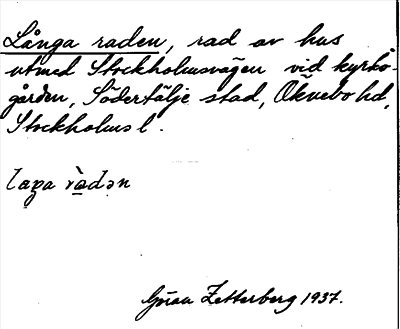 Långa raden, rad av hus
utmed Stockholmsvägen vid kyrko-
gården, Södertälje stad, Öknebo hd,
Stockholms l.
laŋa ràdən
Göran Zetterberg 1937.